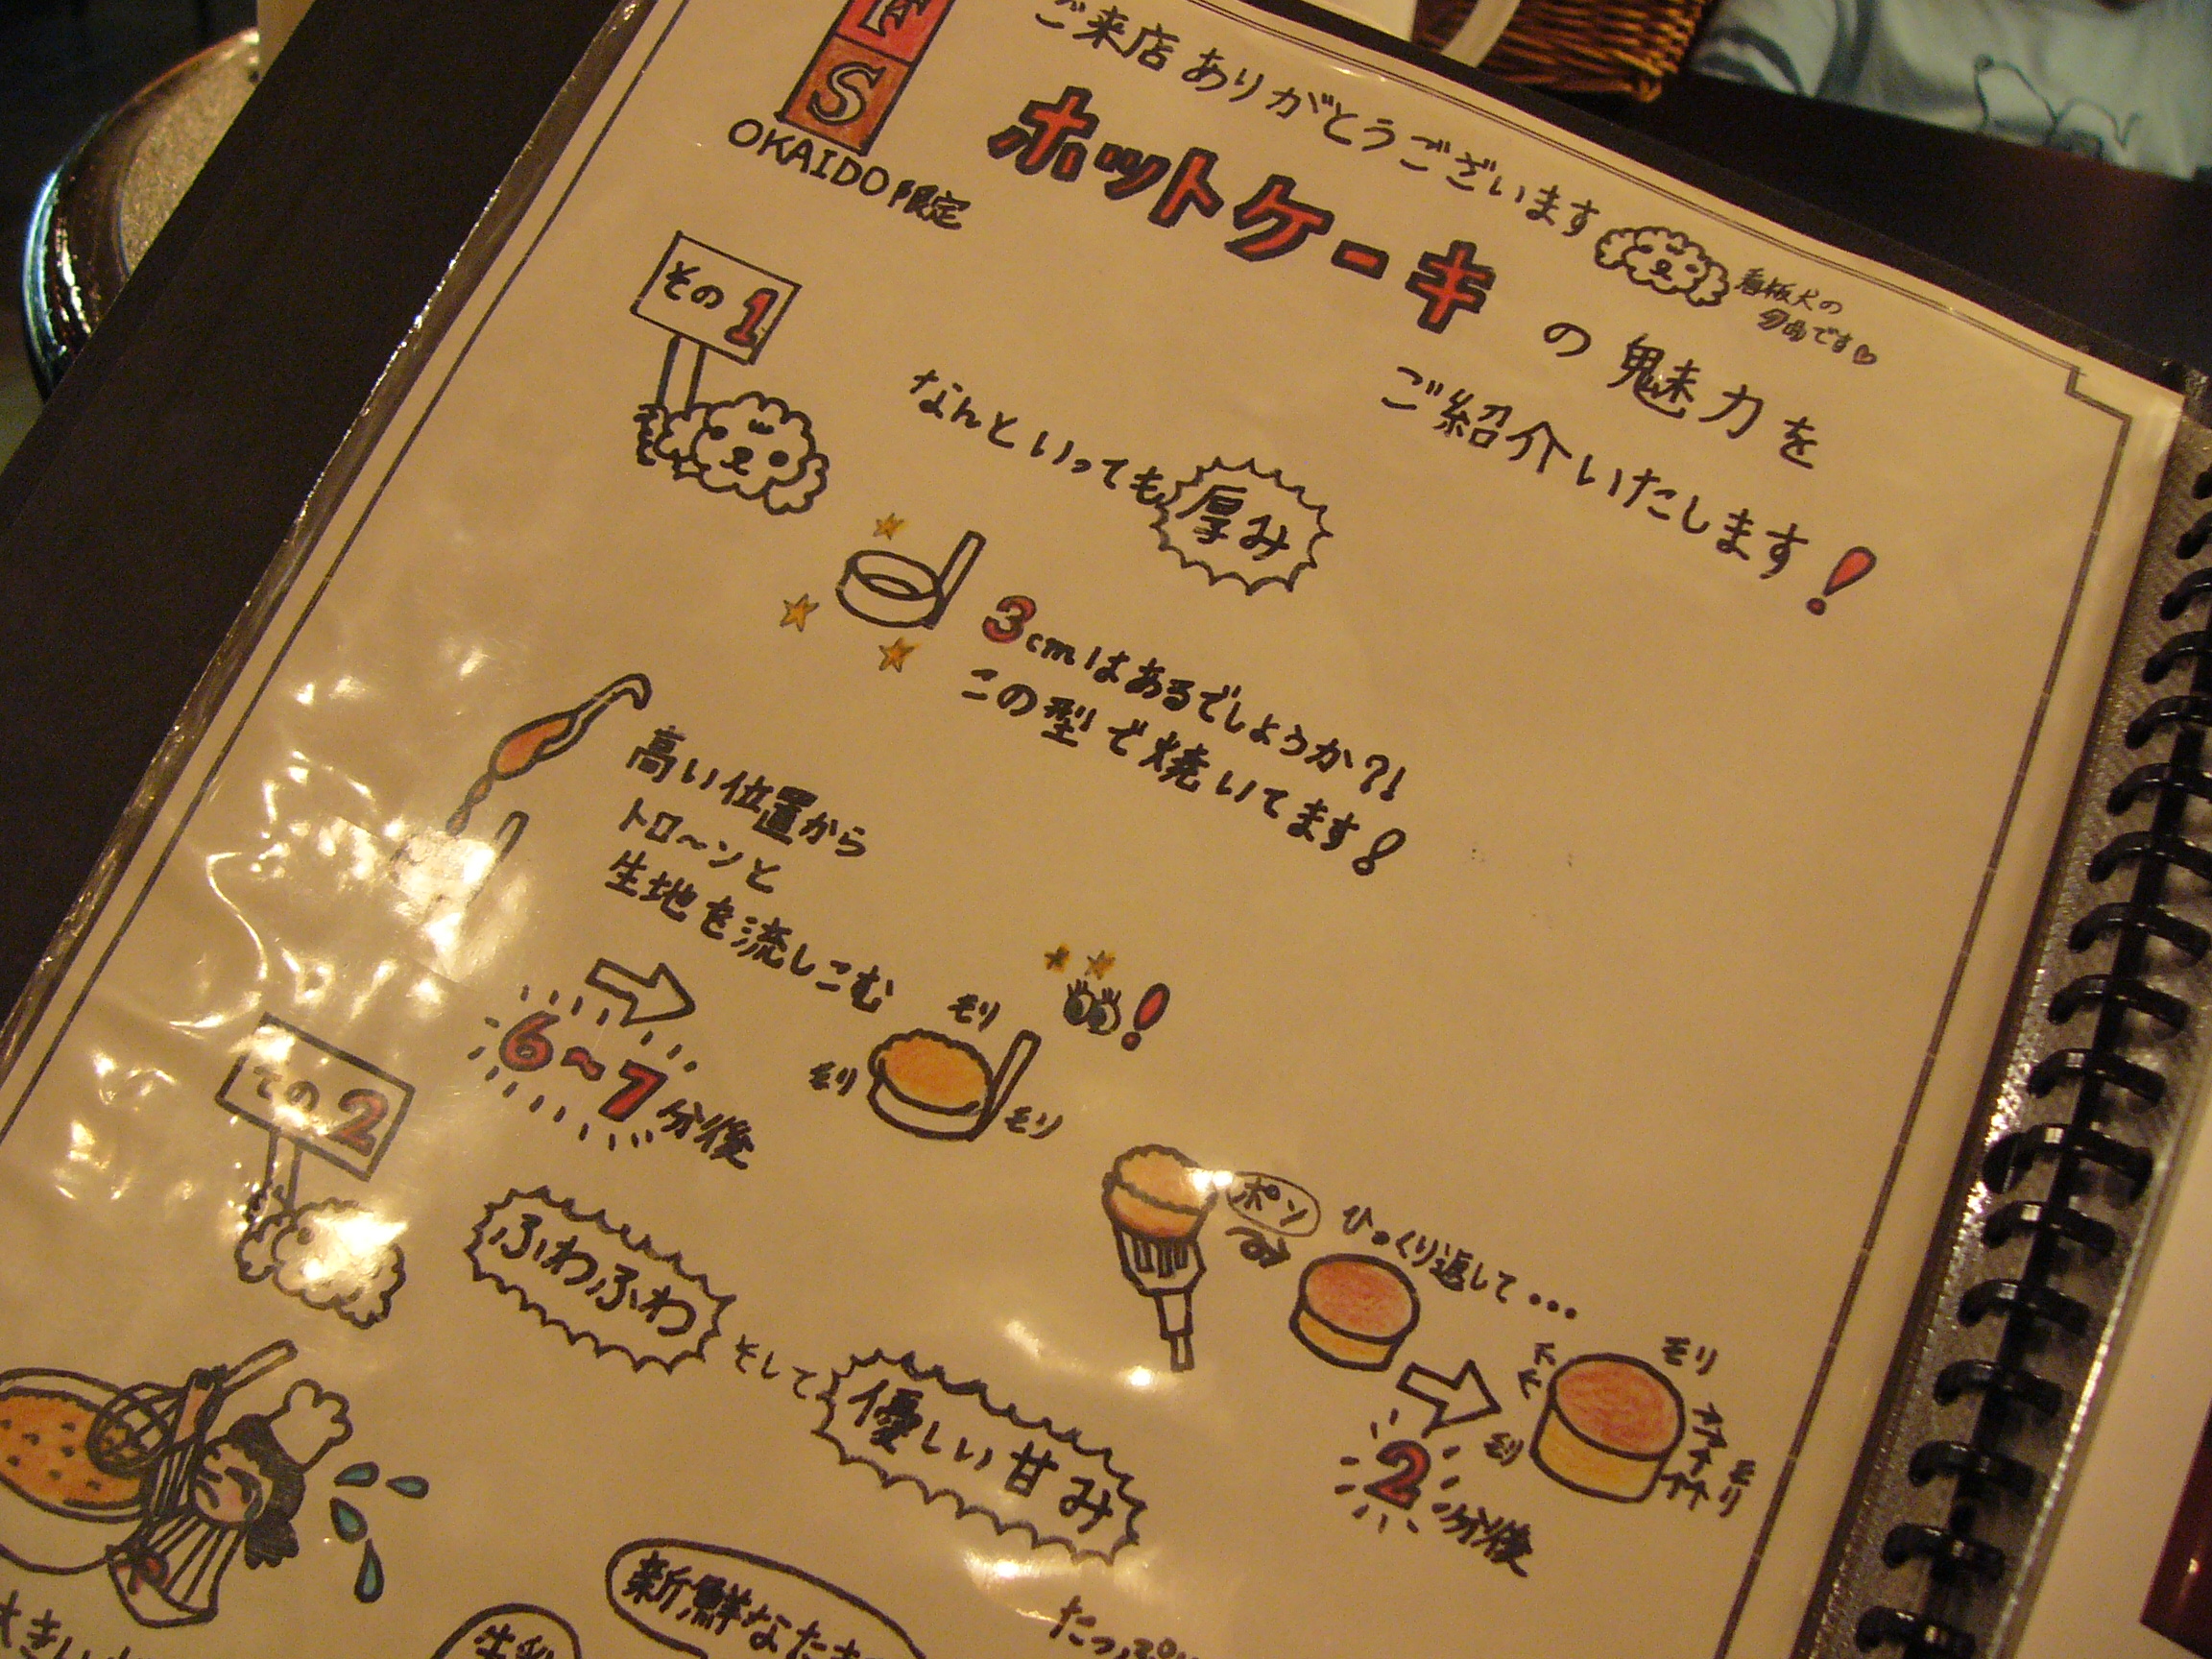 F
S
OKAIDO 限定
ご来店ありがとうございます
看板犬の
ホットケーキの魅力を
ご紹介いたします!
その1
なんといっても厚み
3cmはあるでしょうか?!
この型で焼いてます!
高い位置から
トロ〜ンと
生地を流しこむ
6〜7分後
モリ
モリ
モリ
ポン
ひっくり返して...
2分後
モリ
モリ
モリ
その2
ふわふわ そして 優しい甘み
新鮮なたま
たっぷり
大きい